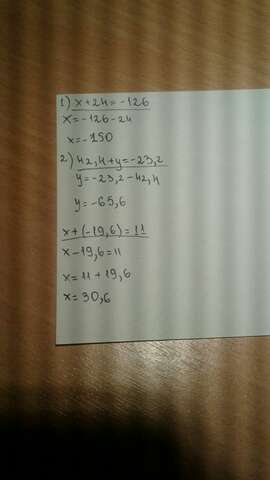 1) x+24=-126
x=-126-24
x=-150
2) 42,4+y=-23,2
y=-23,2-42,4
y=-65,6
x+(-19,6)=11
x-19,6=11
x=11+19,6
x=30,6